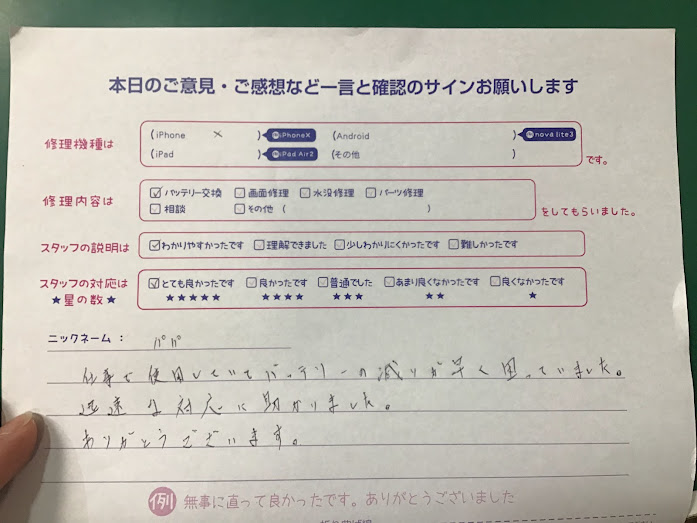 本日のご意見・ご感想など一言と確認のサインお願いします
修理機種は
(iPhone X ) 例iPhoneX (Android ) 例nova lite3
(iPad ) 例iPad Air2 (その他 ) です。
修理内容は
☑バッテリー交換 □画面修理 □水没修理 □パーツ修理
□相談 □その他 ( ) をしてもらいました。
スタッフの説明は ☑わかりやすかったです □理解できました □少しわかりにくかったです □難しかったです
スタッフの対応は ☑とても良かったです □良かったです □普通でした □あまり良くなかったです □良くなかったです
★星の数★ ★★★★★ ★★★★ ★★★ ★★ ★
ニックネーム: パパ
仕事で使用していてバッテリーの減りが早く困っていました。
迅速な対応に助かりました。
ありがとうございます。
例 無事に直って良かったです。ありがとうございました